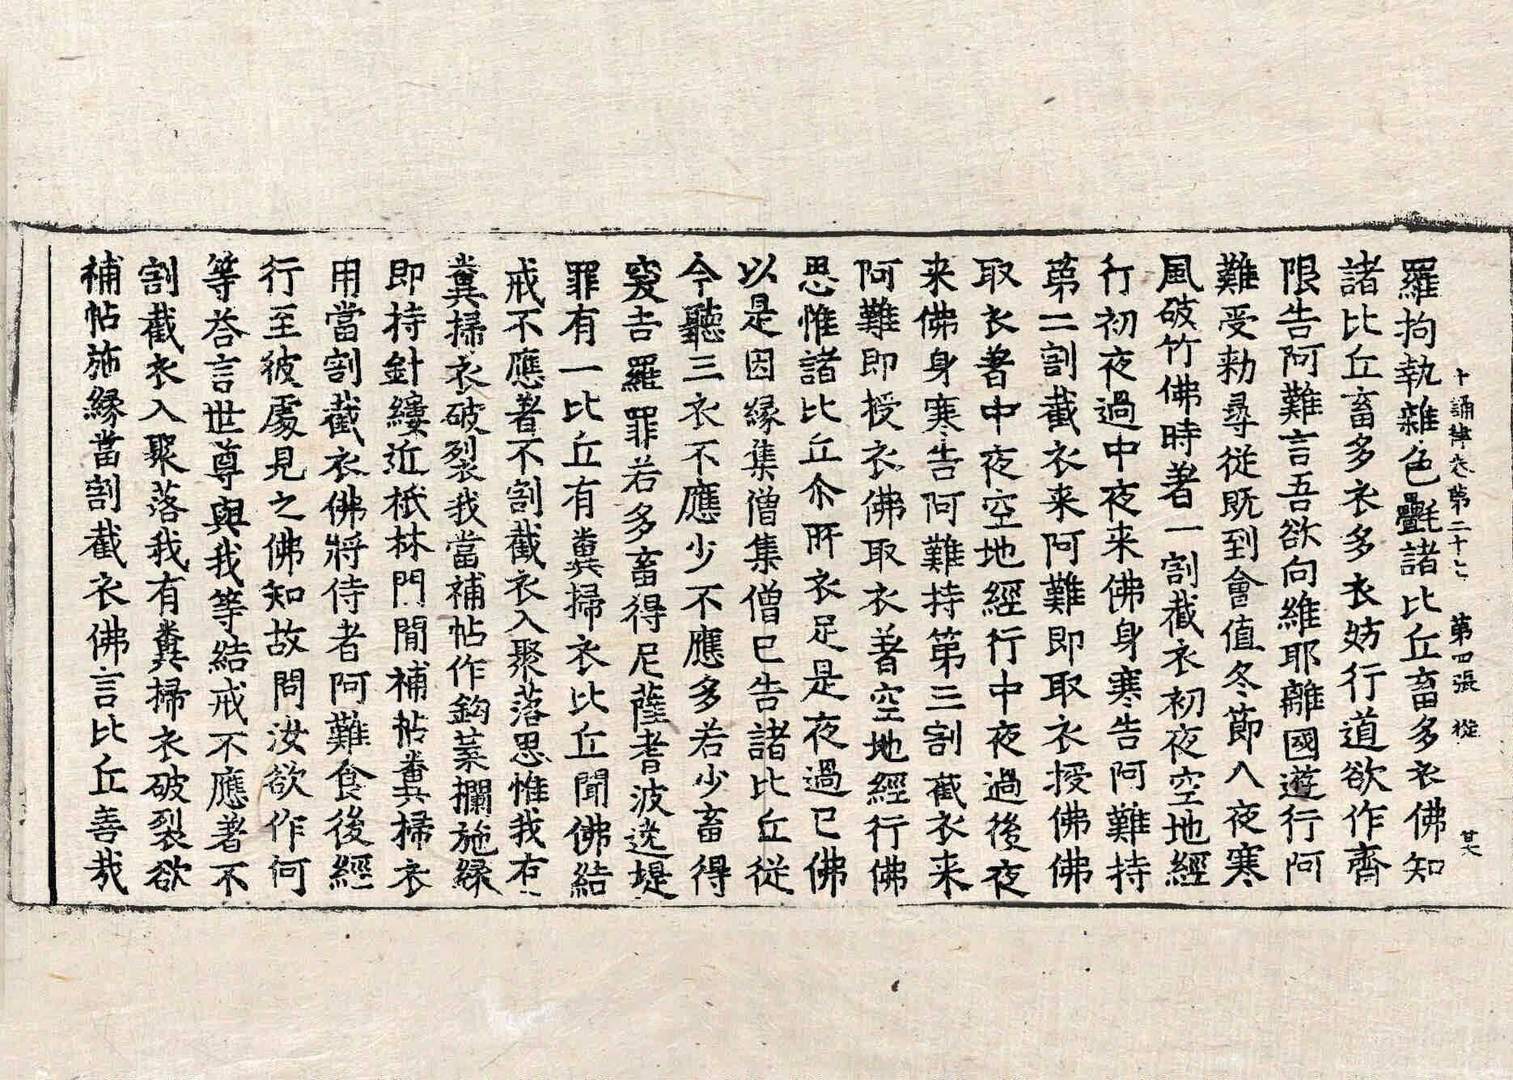 十誦律卷第二十七 第四張 從
羅拘執雜色氎諸比丘畜多衣佛知
諸比丘畜多衣多衣妨行道欲作齊
限告阿難言吾欲向維耶離國遊行阿
難受勑尋從既到會值冬節八夜寒
風破竹佛時著一割截衣初夜空地經
行初夜過中夜来佛身寒告阿難持
第二割截衣来阿難即取衣授佛佛
取衣著中夜空地經行中夜過後夜
来佛身寒告阿難持第三割截衣来
阿難即授衣佛取衣著空地經行佛
思惟諸比丘尒所衣足是夜過已佛
以是因緣集僧集僧已告諸比丘從
今聽三衣不應少不應多若少畜得
突吉羅罪若多畜得尼薩耆波逸提
罪有一比丘有糞掃衣比丘聞佛結
戒不應著不割截衣入聚落思惟我有
糞掃衣破裂我當補帖作鈎葉攔施緣
即持針縷近祇林門閒補帖糞掃衣
用當割截衣佛將侍者阿難食後經
行至彼處見之佛知故問汝欲作何
等荅言世尊與我等結戒不應著不
割截衣入聚落我有糞掃衣破裂欲
補帖施緣當割截衣佛言比丘善哉